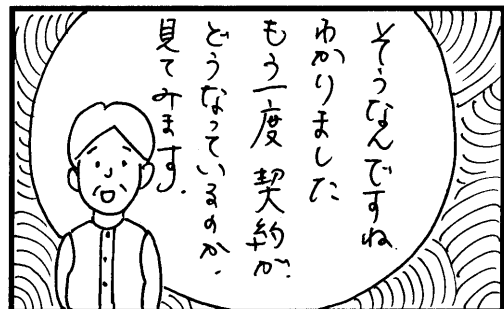 そうなんですね
わかりました
もう一度 契約が
どうなっているのか.
見てみます.